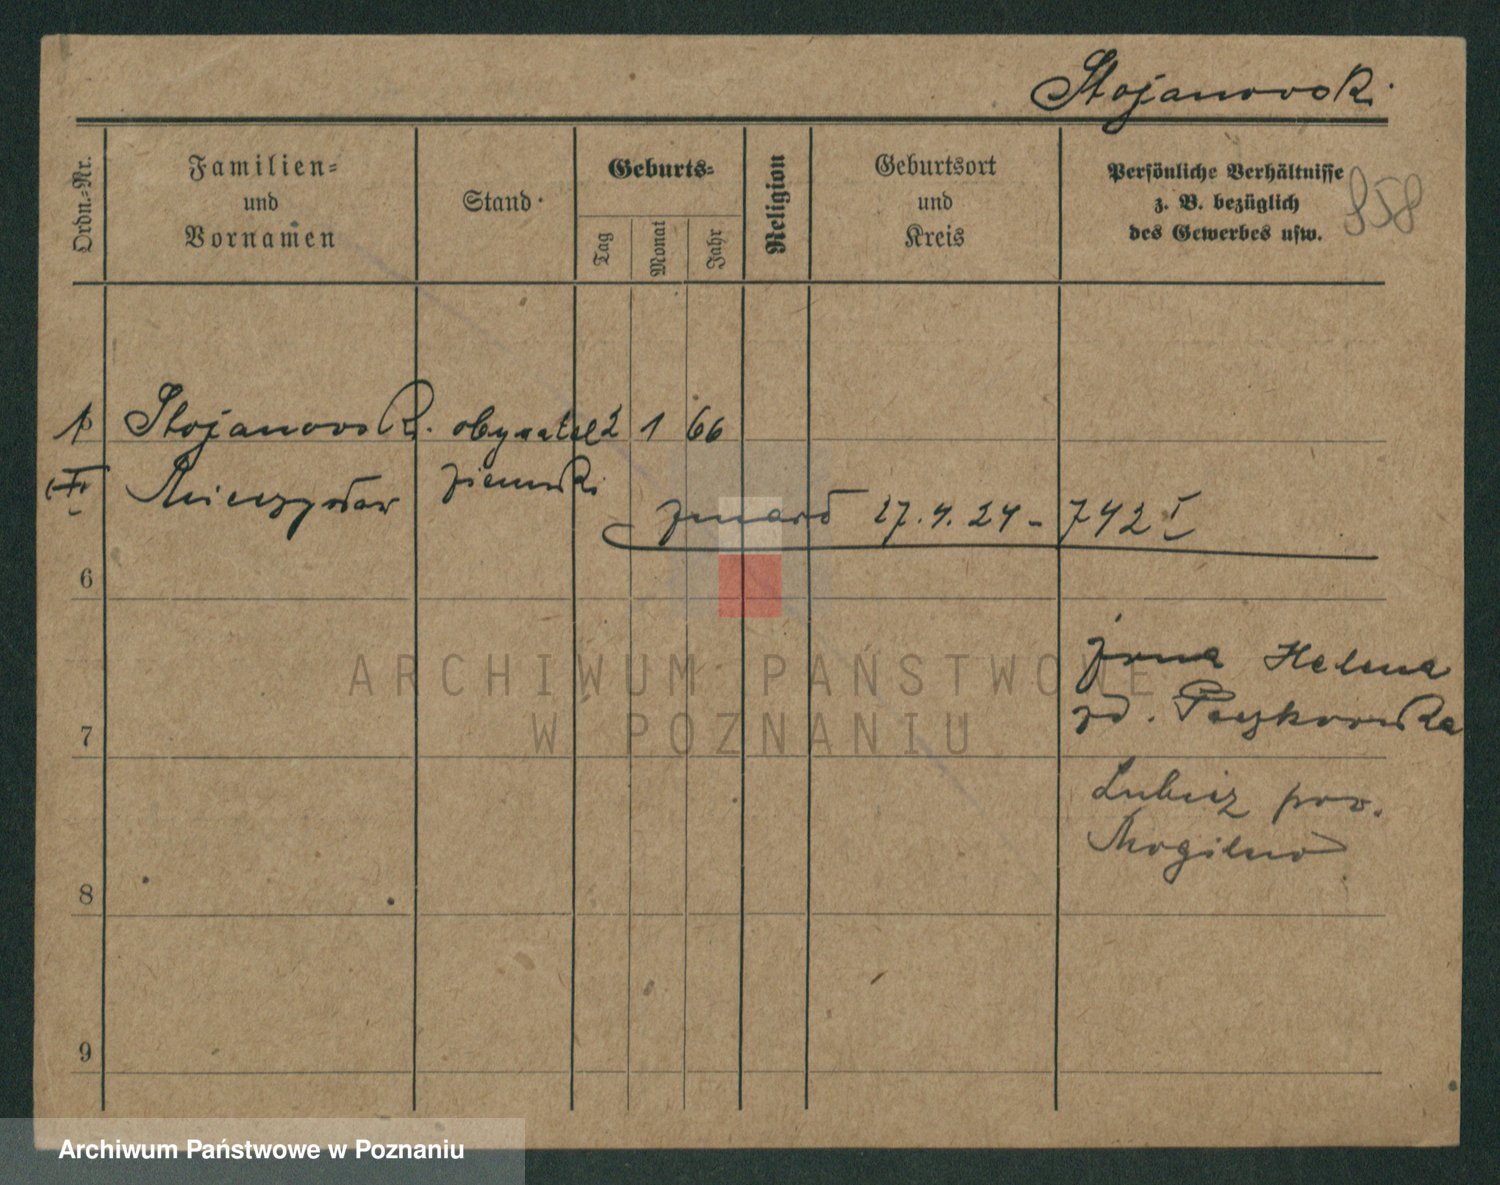 Stojanowski
Ordn.-Nr.
Familien-
und
Vornamen
Stand
Geburts-
Tag
Monat
Jahr
Religion
Geburtsort
und
Kreis
Persönliche Verhältnisse
z. B. bezüglich
des Gewerbes usw.
858
1 Stojanowski obywatel 2 1 66
Mieczysław ziemski
zmarł 27.4.24 - 742 I
6
żona Helena
zd.
7
Lubicz pow.
Mogilno
8
9
ARCHIWUM PAŃSTWOWE
W POZNANIU
Archiwum Państwowe w Poznaniu